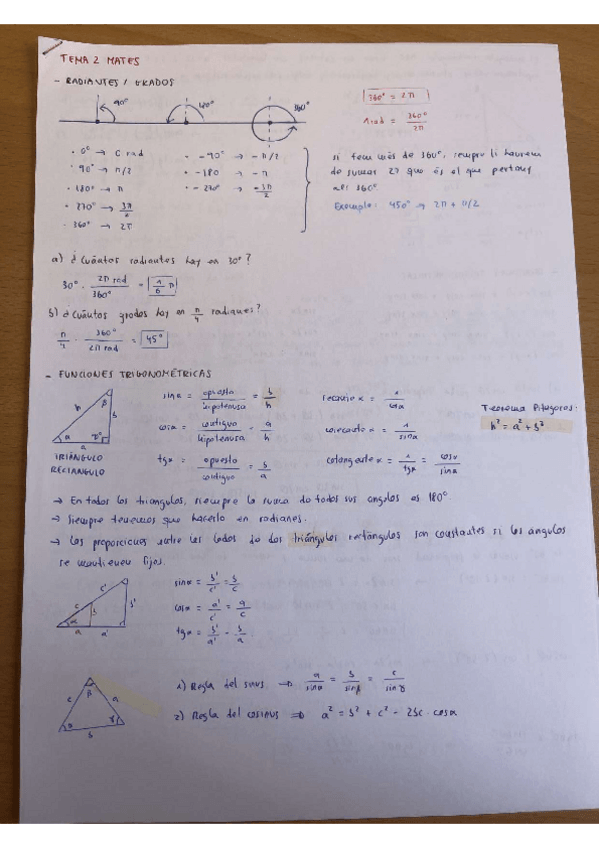 TEMA 2 MATES
- RADIANTES / GRADOS
90º
360º
360º = 2π
1 rad = 360º / 2π
· 0º → 0 rad
· 90º → π/2
· 180º → π
· 270º → 3π/2
· 360º → 2π
· -90º → -π/2
· -180 → -π
· -270º → -3π/2
si tenim més de 360º, sempre li haurem
de sumar 2π que és el que pertany
als 360º.
Exemple: 450º → 2π + π/2
a) ¿Cuántos radiantes hay en 30º?
30º · 2π rad / 360º = 1/6 π
b) ¿Cuántos grados hay en π/4 radianes?
π/4 · 360º / 2π rad = 45º
- FUNCIONES TRIGONOMÉTRICAS
h β b α a
TRIÁNGULO
RECTÁNGULO
sinα = opuesto / hipotenusa = b/h
cosα = contiguo / hipotenusa = a/h
tgα = opuesto / contiguo = b/a
secante α = 1 / cosα
cosecante α = 1 / sinα
cotangente α = 1 / tgα = cosα / sinα
Teorema Pitágoras:
h² = a² + b²
→ En todos los triangulos, siempre la suma de todos sus angulos es 180º.
→ Siempre tenemos que hacerlo en radianes.
→ Las proporciones entre los lados de dos triángulos rectángulos son constantes si los ángulos
se mantienen fijos.
c' c b b' α a a'
sinα = b'/c' = b/c
cosα = a'/c' = a/c
tgα = b'/a' = b/a
β c a α γ b
1) Regla del sinus ⇒ a / sinα = b / sinβ = c / sinγ
2) Regla del cosinus ⇒ a² = b² + c² - 2bc · cosα